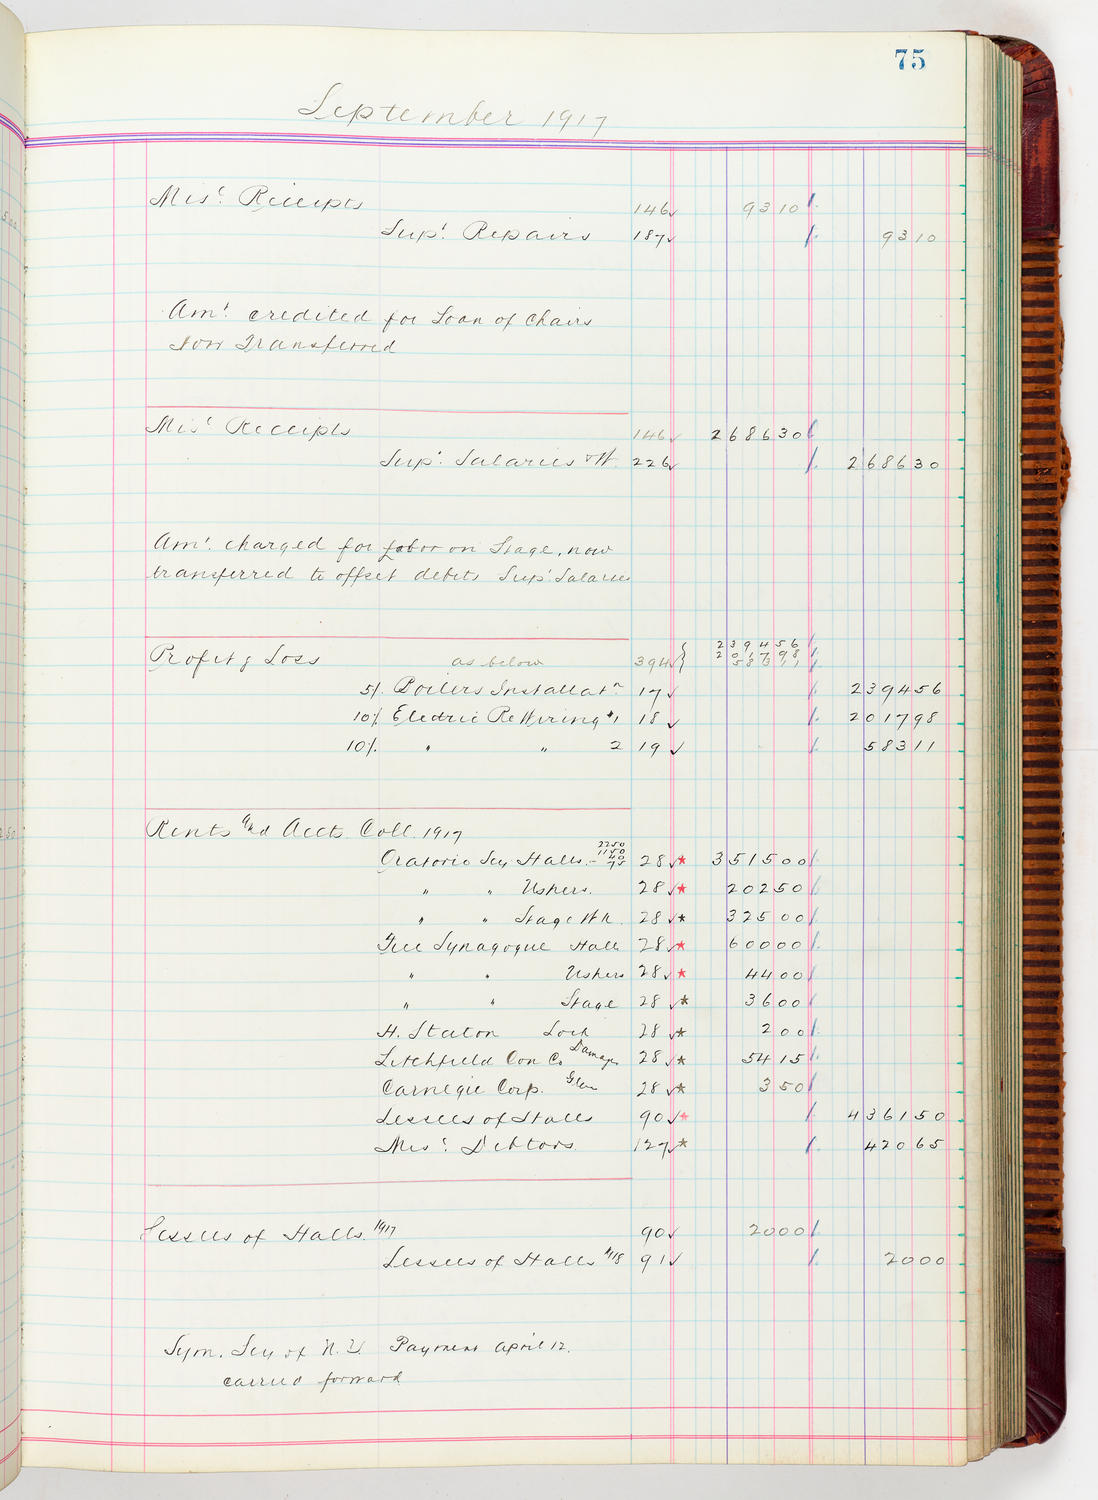 75
September 1917
Misc Receipts 146 ✓ 9310
Supt. Repairs 187 ✓ 9310
Amt. credited for Loan of Chairs
now Transferred
Misc Receipts 146 ✓ 268630
Supt. Salaries 226 ✓ 268630
Amt. charged for Labor on Stage, now
transferred to offset debits Supt. Salaries
Profit & Loss as below 394 ✓ { 239456
201798
58311
5% Boilers Installatn 17 ✓ 239456
10% Electric ReWiring #1 18 ✓ 201798
10% " " 2 19 ✓ 58311
Rents and Accts Coll. 1917
2250
1150
40
75
Oratorio Socy Halls 28 ✓* 351500
" " Ushers. 28 ✓* 20250
" " Stage 28 ✓* 32500
Free Synagogue Hall 28 ✓* 60000
" " Ushers 28 ✓* 4400
" " Stage 28 ✓* 3600
H. Staton Lock 28 ✓* 200
Litchfield Con Co Damage 28 ✓* 5415
Carnegie Corp. Glass 28 ✓* 350
Lessees of Halls 90 ✓* 436150
Misc. Debtors. 127 ✓* 42065
Lessees of Halls 1917 90 ✓ 2000
Lessees of Halls 1918 91 ✓ 2000
Sym. Socy of N.Y. Payment April 12.
carried forward